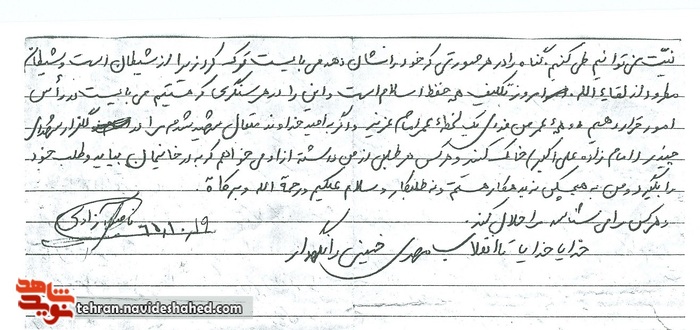 نیت می توانیم طی کنیم. گناه را در هر صورتی که خود را نشان دهد می بایست ترک کرد زیرا از شیطان است و شیطان
مطرود از لقاءالله. امروز تکلیف همه حفظ اسلام است و این را در هر سنگری که هستیم می بایست در رأس
امور قرار دهیم. همه عمر من فدای یک لحظه عمر امام عزیز. و اگر به امید خداوند متعال شهید شدم مرا در گلزار شهدای
چیذر امامزاده علی اکبر (ع) خاک کنند و هر کس هر طلبی از من داشته آزاد می خواهم که به در خانه مان بیاید و طلب خود
را بگیرد و من به هیچکس نه بدهکار هستم و نه طلبکار والسلام علیکم و رحمة الله و برکاته.
و هر کس مرا می شناسد مرا حلال کند.
خدایا خدایا تا انقلاب مهدی خمینی را نگهدار
ناصر آزادی
۱۹ـ۱۰ـ۶۵
نوید شاهد
tehran.navideshahed.com